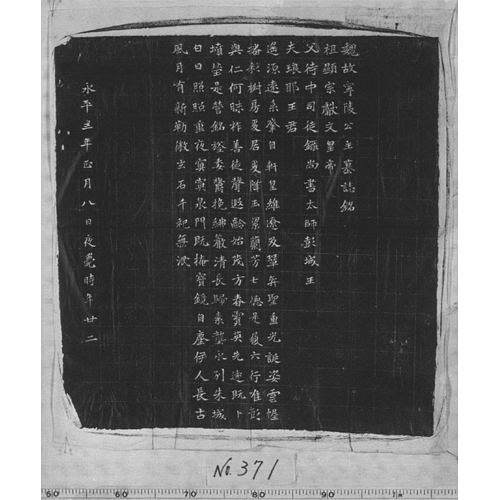 魏故寧陵公主墓誌銘
祖顯宗獻文皇帝
父侍中司徒録尚書太師彭城王
夫琅耶王君
遥源遠系肇自軒皇維遼及巩弈聖重光誕姿雲幄
播彩樹房爰居爰降玉潔蘭芳七德是履六行唯彰
與仁何昧祚善徒聲遐齡始茂方春實英先遠既卜
墳塋是營銘旌委鬱挽紼嚴清長歸素壟永列朱城
白日照照重夜冥冥泉門既掩寶鏡自塵伊人長古
風月有新勒徽玄石千祀無淪
永平三年正月八日夜薨時年廿二
No.371
60 70 80 90